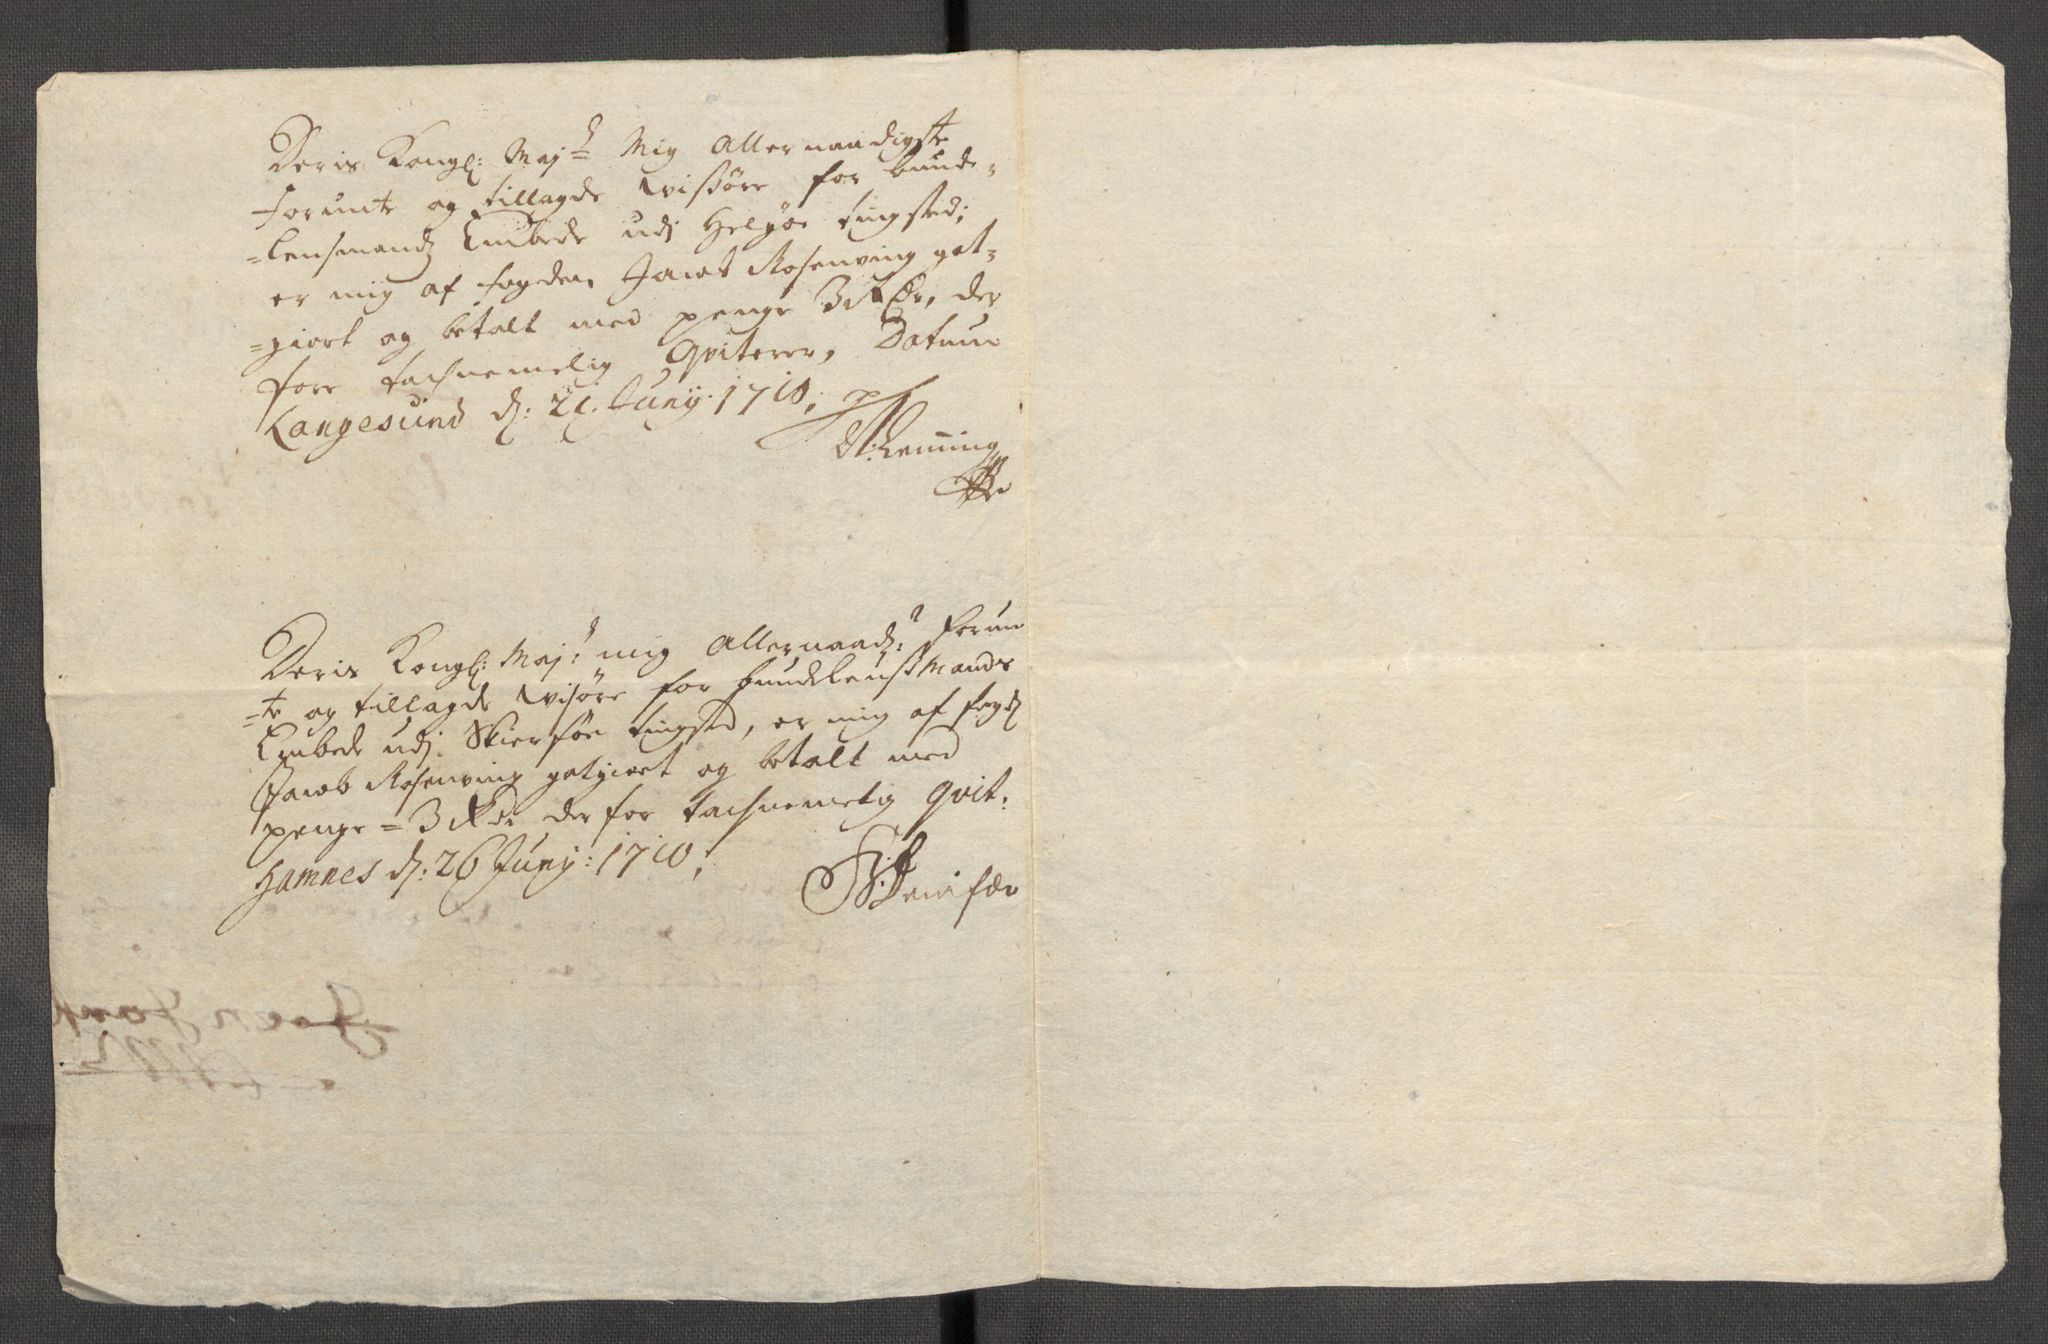 Deris Kongl: Maj:tz Mig Allernaadigste
forunte og tillagde Wisöre for bunde-
=lensmandz Embede udj Helgöe tingsted;
er mig af fogden Jacob Rosenving got-
=giort og betalt med penge 3 Rdr, der
fore tachnemelig Qviterer, Datum
Langesund d: 21. Juny: 1710;
Deris Kongl: Maj:tz mig Allernaadr: forun
=te og tillagde Wisöre for bundelenssmands
Embede udj Skierföe tingsted, er mig af fogd
Jacob Rosenving gotgiort og betalt med
penge = 3 Rdr der for tachnemelig Qvit:
Hamnes d: 26 Juny: 1710;